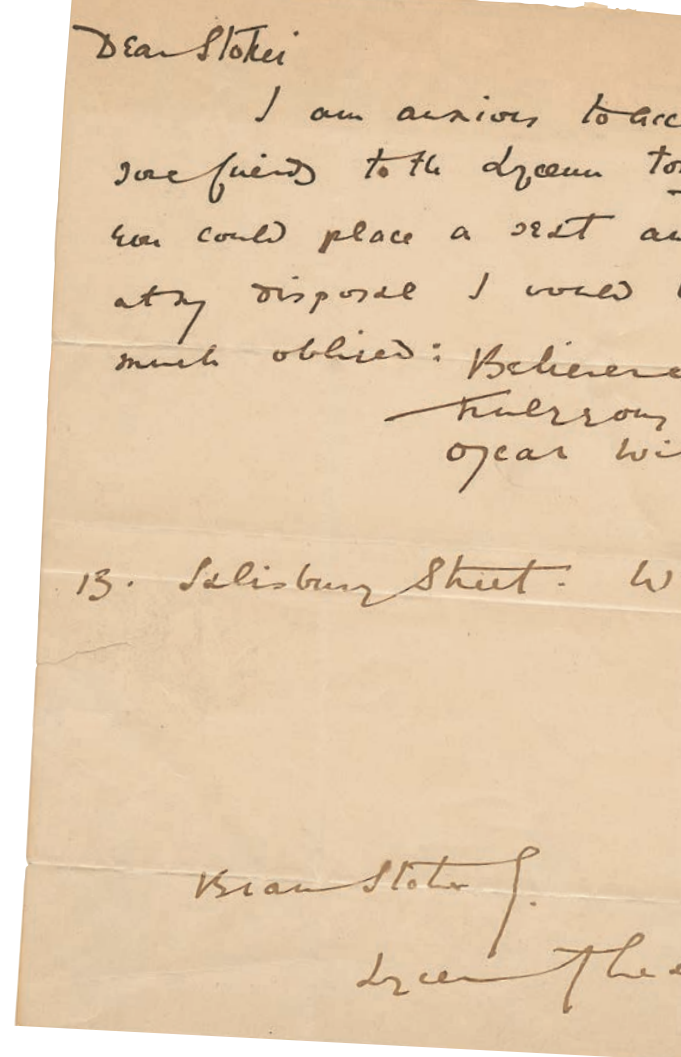 Dear Stoker
I am anxious to acc
some friends to the Lyceum to
you could place a seat
at my disposal I would
much obliged: Believe me
truly yours
Oscar Wi
13. Salisbury Street. W
Bram Stoker
Lyceum Thea